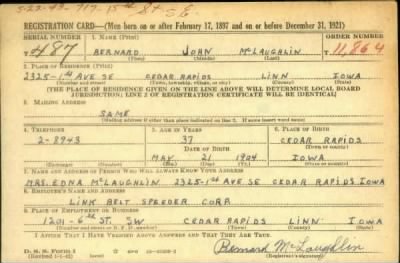 REGISTRATION CARD—(Men born on or after February 17, 1897 and on or before December 31, 1921)
SERIAL NUMBER 1. NAME (Print) ORDER NUMBER
T 487 BERNARD JOHN McLAUGHLIN 11,864
(First) (Middle) (Last)
2. PLACE OF RESIDENCE (Print)
2325-1st AVE SE CEDAR RAPIDS LINN IOWA
(Number and street) (Town, township, village, or city) (County) (State)
[THE PLACE OF RESIDENCE GIVEN ON THE LINE ABOVE WILL DETERMINE LOCAL BOARD
JURISDICTION; LINE 2 OF REGISTRATION CERTIFICATE WILL BE IDENTICAL]
3. MAILING ADDRESS
SAME
(Mailing address if other than place indicated on line 2. If same insert word same)
4. TELEPHONE 5. AGE IN YEARS 6. PLACE OF BIRTH
2-8943 37 CEDAR RAPIDS
DATE OF BIRTH (Town or county)
MAY 21 1904 IOWA
(Exchange) (Number) (Mo.) (Day) (Yr.) (State or country)
7. NAME AND ADDRESS OF PERSON WHO WILL ALWAYS KNOW YOUR ADDRESS
MRS. EDNA McLAUGHLIN 2325-1st AVE SE CEDAR RAPIDS IOWA
8. EMPLOYER'S NAME AND ADDRESS
LINK BELT SPEEDER CORP.
9. PLACE OF EMPLOYMENT OR BUSINESS
1201-6th ST. SW CEDAR RAPIDS LINN IOWA
(Number and street or R. F. D. number) (Town) (County) (State)
I AFFIRM THAT I HAVE VERIFIED ABOVE ANSWERS AND THAT THEY ARE TRUE.
D. S. S. Form 1
Bernard McLaughlin